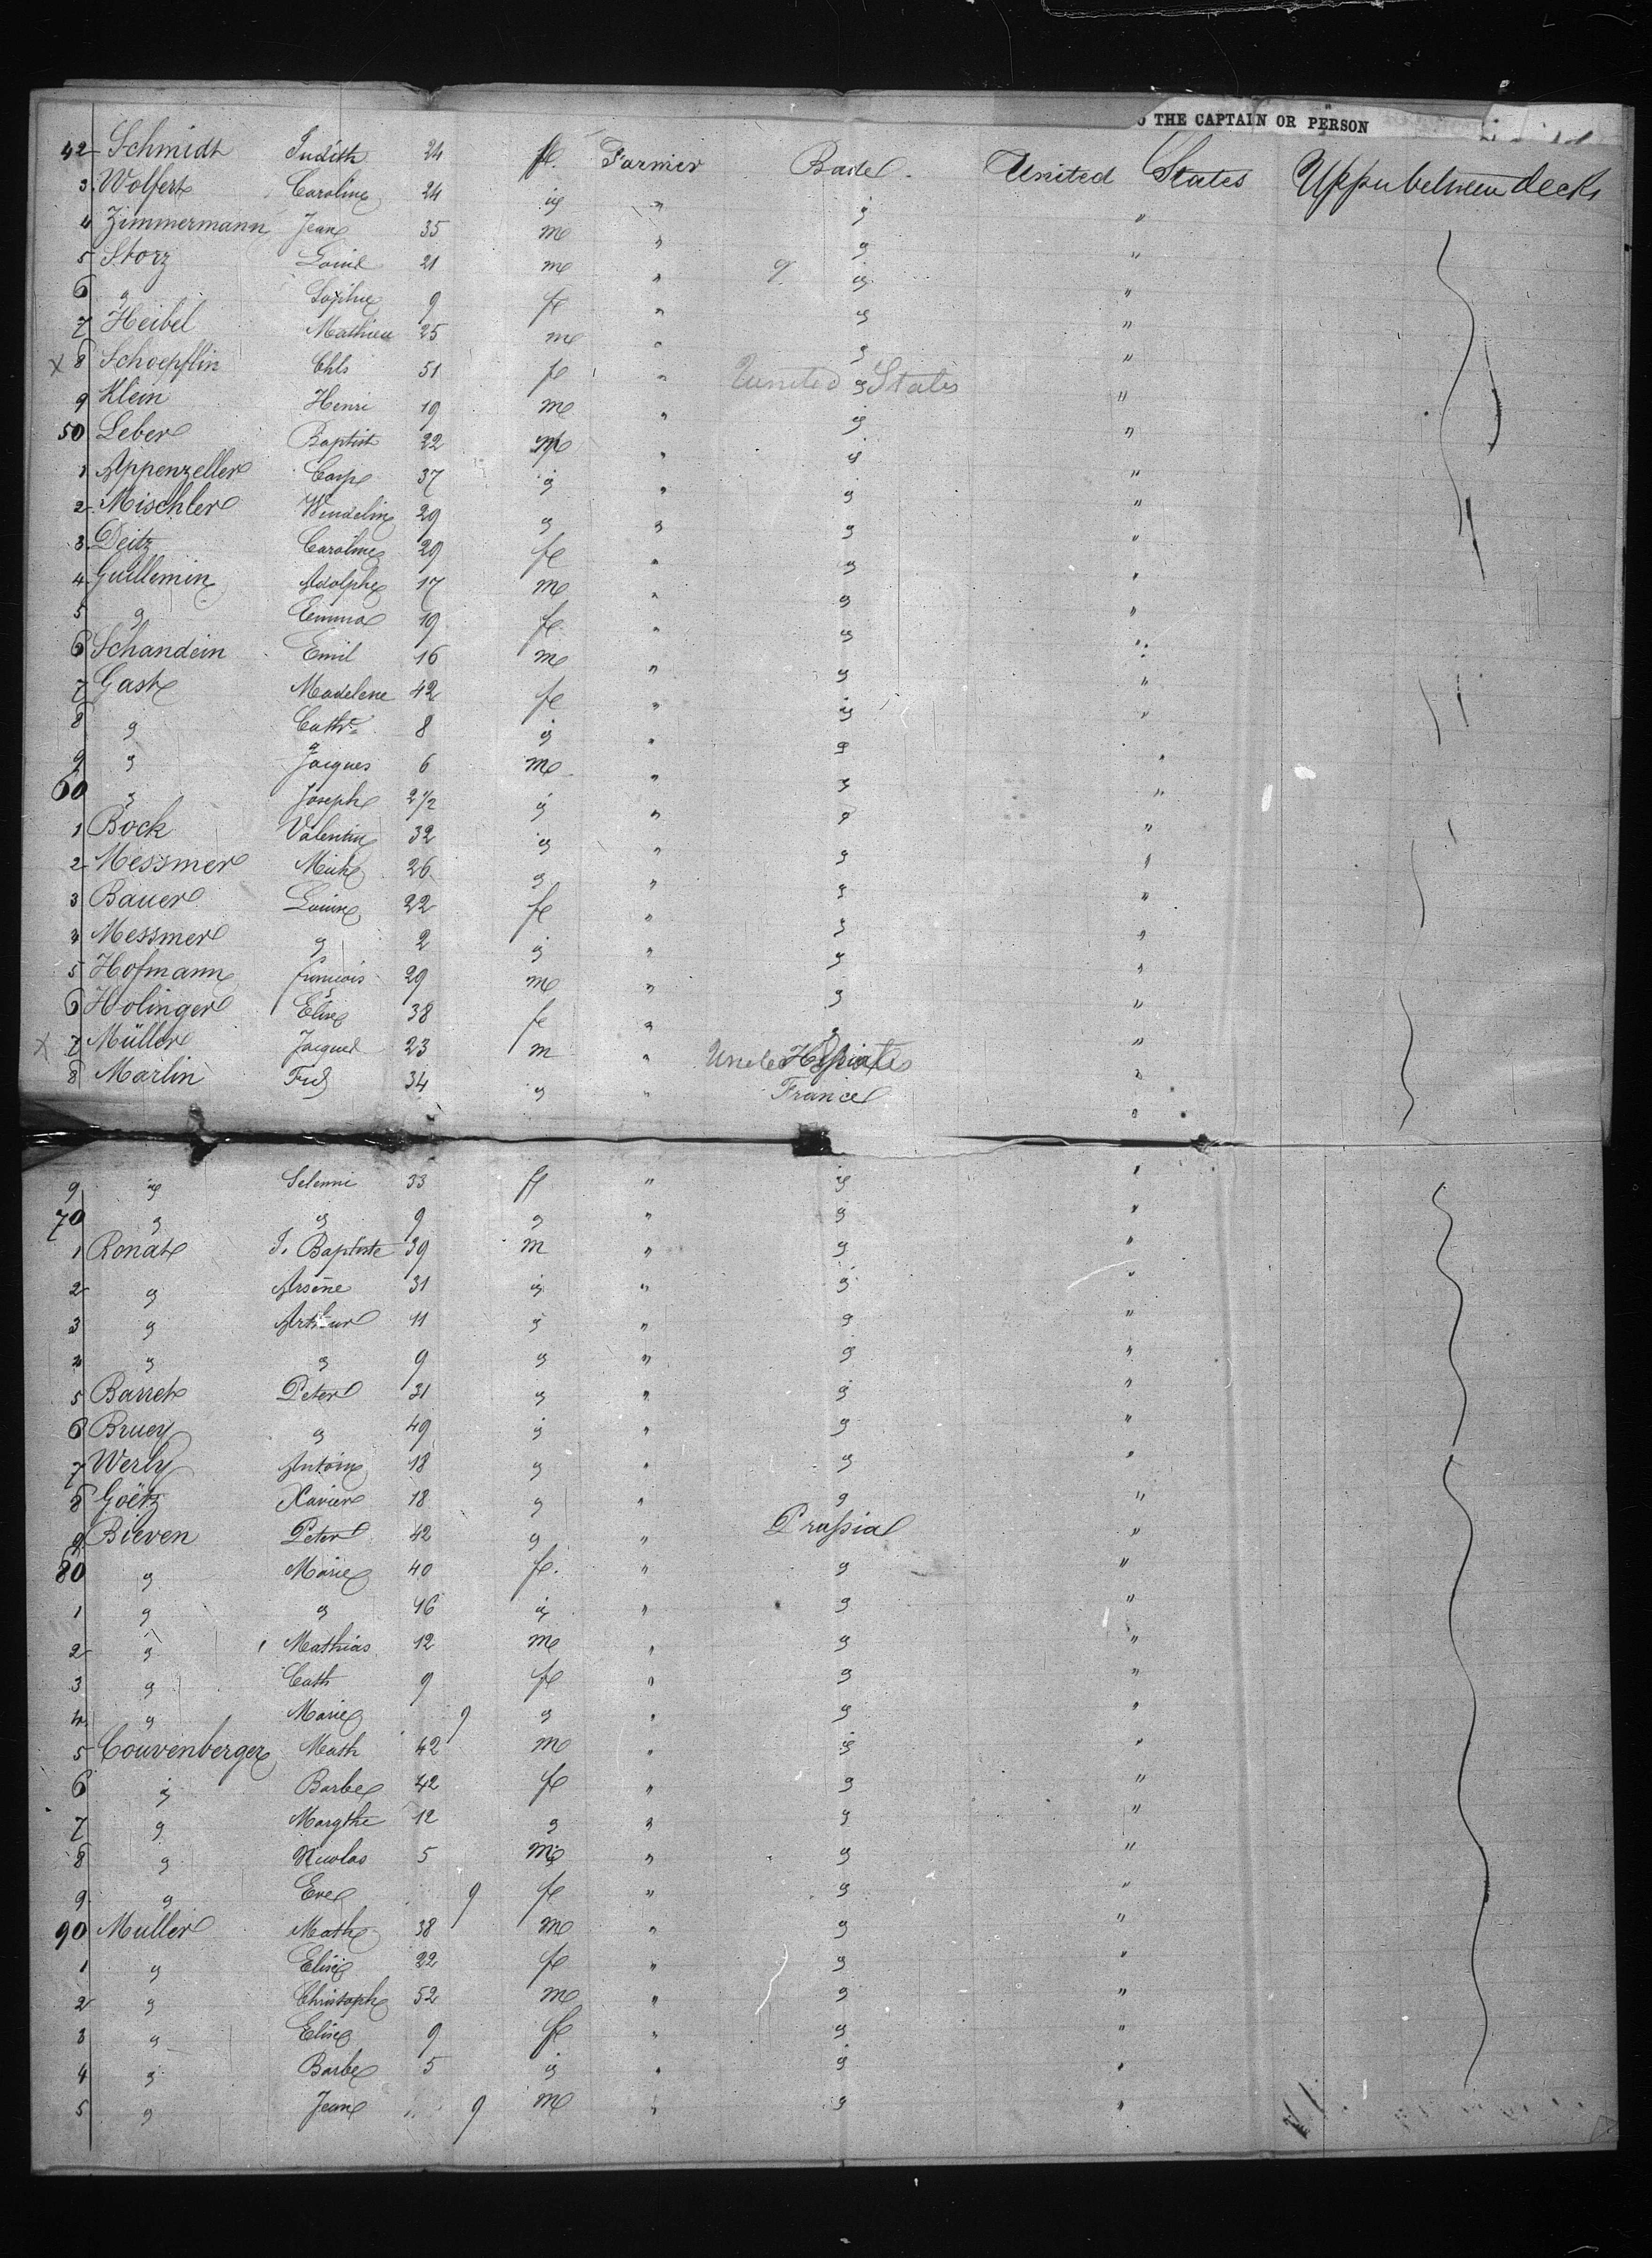 O THE CAPTAIN OR PERSON
42 Schmidt Judith 24 fe. Farmer Badel. United States Upper between decks
3. Wolfert Caroline 24 " " " "
4 Zimmermann Jean 35 m " " "
5 Storz Louis 21 m " " "
6 " Sophie 9 fe " " "
7 Heibel Mathieu 25 m " " "
x 8 Schoepflin Chls 51 fe " United States "
9 Klein Henri 19 m " " "
50 Leber Baptist 22 m " " "
1 Appenzeller Casp 37 " " " "
2 Mischler Wendelin 29 " " " "
3. Deitz Caroline 29 fe " " "
4 Guillemin Adolphe 17 m " " "
5 " Emma 19 fe " " "
6 Schandein Emil 16 m " " "
7 Gast Madelene 42 fe " " "
8 " Cath. 8 " " " "
9 " Jacques 6 m " " "
60 " Joseph 2 1/2 " " " "
1 Bock Valentin 32 " " " "
2 Messmer Mich 26 " " " "
3 Bauer Louise 22 fe " " "
4 Messmer " 2 " " " "
5 Hofmann françois 29 m " " "
6 Holinger Elise 38 fe " " "
x 7 Müller Jacques 23 m " "
8 Marlin Frid 34 " " France "
9 " Selenni 33 fe " " "
70 " " 9 " " " "
1 Ronat J. Baptiste 39 m " " "
2 " Arsène 31 " " " "
3 " Arthur 11 " " " "
4 " " 9 " " " "
5 Barret Peter 31 " " " "
6 Bruey " 49 " " " "
7 Werly Antoine 18 " " " "
8 Goëtz Xavier 18 " " " "
9 Bieven Peter 42 " " Prussia "
80 " Marie 40 fe. " " "
1 " " 16 " " " "
2 " Mathias 12 m " " "
3 " Cath 9 fe " " "
4 " Marie 9 " " " "
5 Couvenberger Math 42 m " " "
6 " Barbe 42 fe " " "
7 " Margthe 12 " " " "
8 " Nicolas 5 m " " "
9 " Eve 9 fe " " "
90 Muller Math 38 m " " "
1 " Elise 22 fe " " "
2 " Christoph 52 m " " "
3 " Elise 9 fe " " "
4 " Barbe 5 " " " "
5 " Jean 9 m " " "